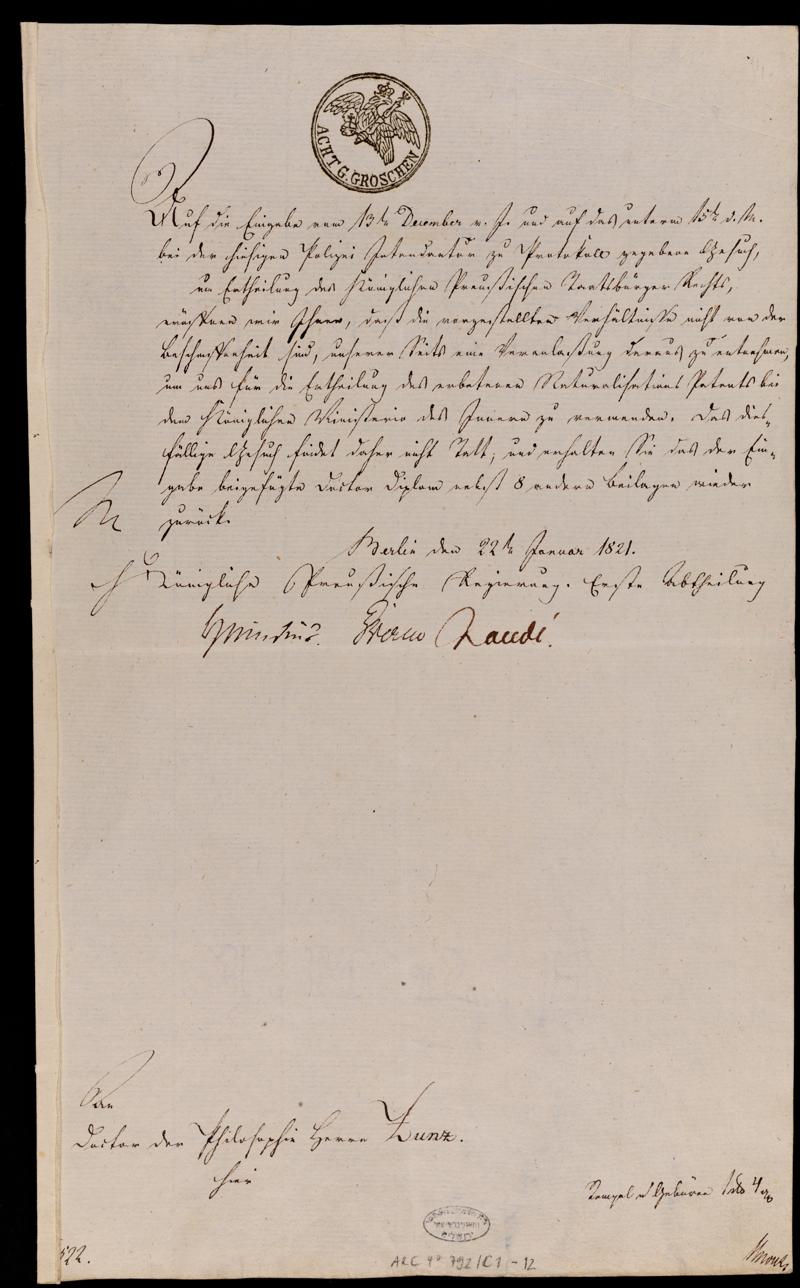 ACHT G. GROSCHEN
Auf die Eingabe vom 13ten December v. J. und auf das unterm 15ten d. M.
bei der hiesigen Polizei Intendantur zu Protokoll gegebene Gesuch,
um Ertheilung des Königlichen Preußischen Staatsbürger Rechts,
eröffnen wir Ihnen, daß die vorgestellten Verhältnisse nicht von der
Beschaffenheit sind, unserer Seits eine Veranlaßung daraus zu entnehmen,
um uns für die Ertheilung des erbetenen Naturalisations Patents bei
dem Königlichen Ministerio des Innern zu verwenden. Das dies-
fällige Gesuch findet daher nicht Statt, und erhalten Sie das der Ein-
gabe beigefügte Doctor Diplom nebst 8 andern Beilagen wieder
zurück.
Berlin den 22ten Januar 1821.
Königliche Preußische Regierung. Erste Abtheilung
An
Doctor der Philosophie Herrn Zunz.
hier
Stempel u Gebüren
522.
ARC 4° 792/C1-12